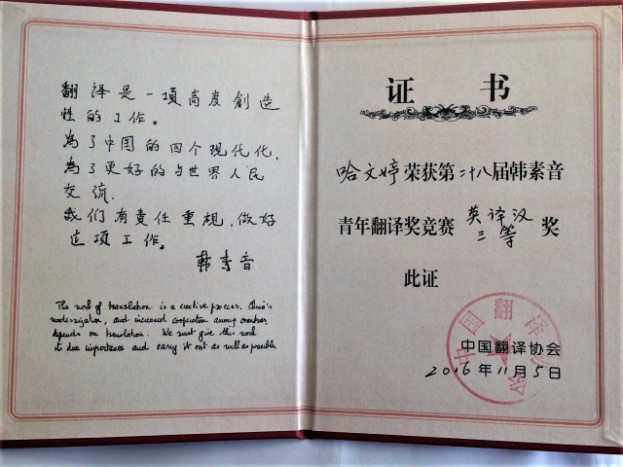 翻译是一項高度創造
性的工作。
為了中国的四个现代化,
為了更好的与世界人民
交流,
我们有責任重視,做好
这項工作。
韩素音
The work of translation is a creative process. China's
modernization, and increased cooperation among countries,
depends on translation. We must give this work
its due importance and carry it out as well as possible
证 书
哈文婷荣获第二十八届韩素音
青年翻译奖竞赛 英译汉 三等 奖
此证
中国翻译协会
中国翻译协会
2016年11月5日